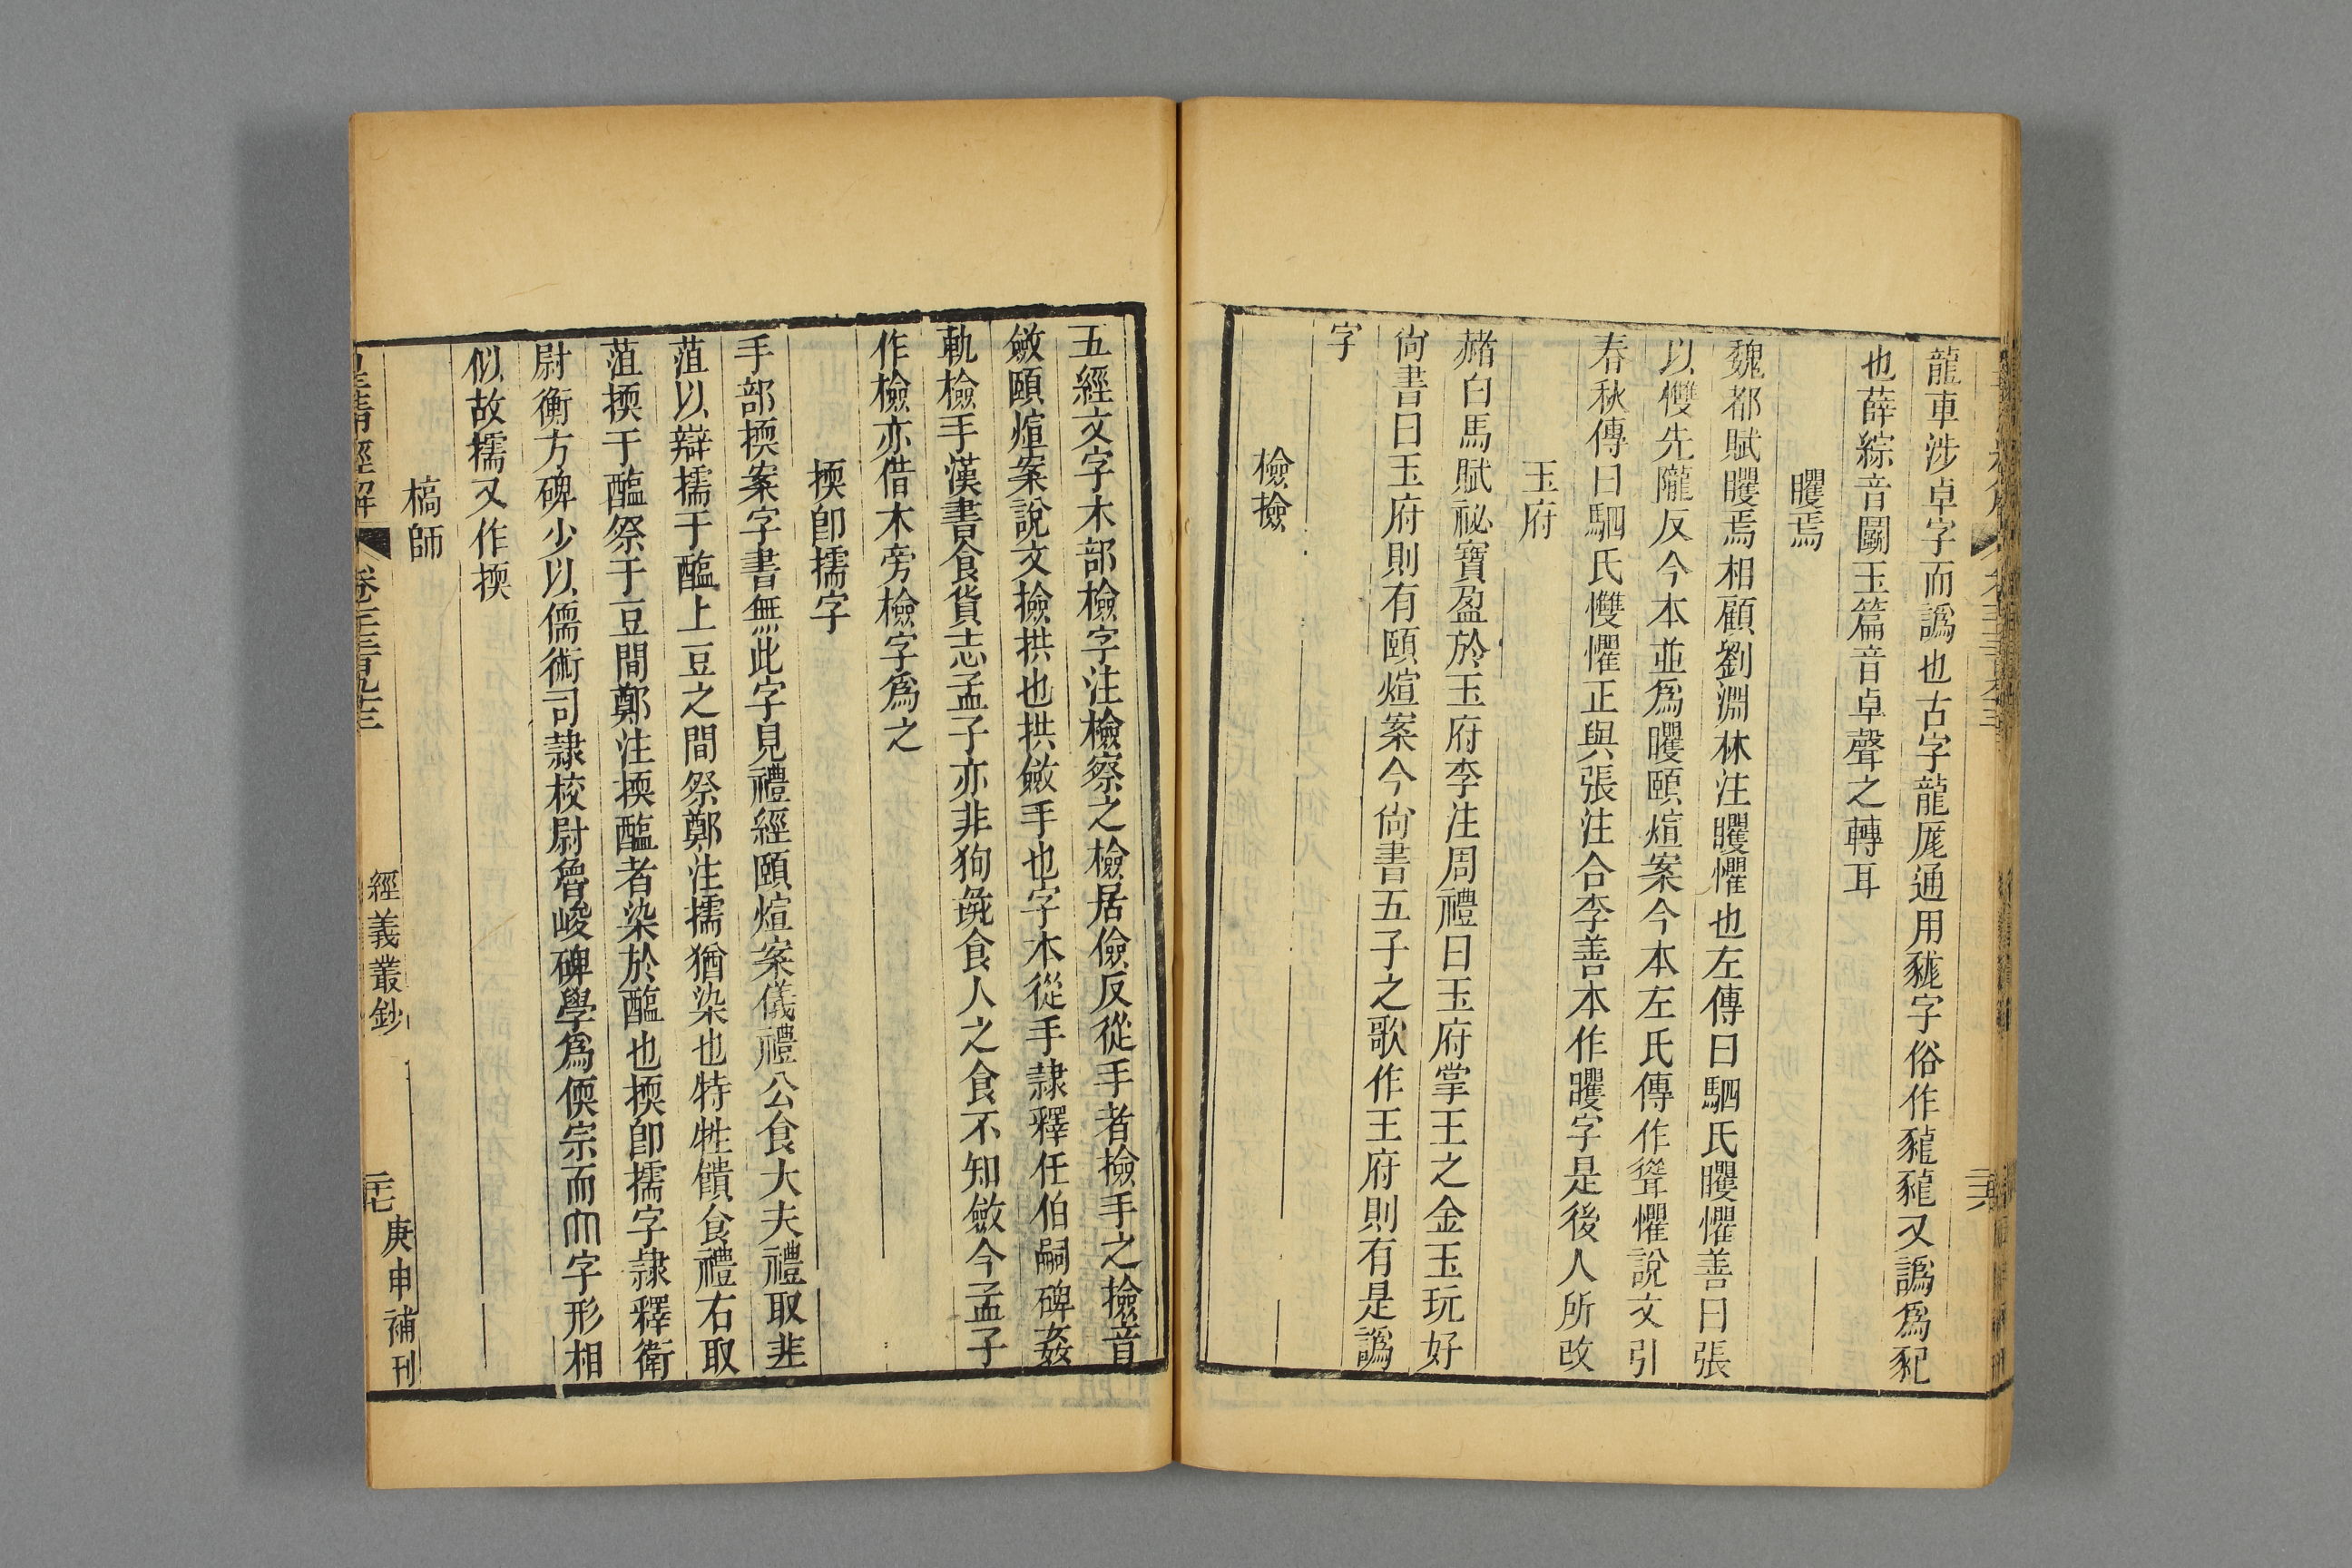 龍車涉卓字而譌也古字龍厖通用豵字俗作豵豵又譌爲豝
也薛綜音鬭玉篇音卓聲之轉耳
矆焉
魏都賦矆焉相顧劉淵林注矆懼也左傳曰駟氏矆懼善曰張
以㦼先隴反今本並爲矆頤煊案今本左氏傳作聳懼說文引
春秋傳曰駟氏㦼懼正與張注合李善本作矆字是後人所改
玉府
赭白馬賦祕寶盈於玉府李注周禮曰玉府掌王之金玉玩好
尙書曰玉府則有頤煊案今尙書五子之歌作王府則有是譌
字
檢撿
五經文字木部檢字注檢察之檢居儉反從手者撿手之撿音
斂頤煊案說文撿拱也拱斂手也字木從手隷釋任伯嗣碑姦
軌檢手漢書食貨志孟子亦非狗彘食人之食不知斂今孟子
作檢亦借木旁檢字爲之
㨎卽擩字
手部㨎案字書無此字見禮經頤煊案儀禮公食大夫禮取韭
菹以辯擩于醢上豆之間祭鄭注擩猶染也特牲饋食禮右取
菹㨎于醢祭于豆間鄭注㨎醢者染於醢也㨎卽擩字隷釋衛
尉衡方碑少以儒術司隷校尉魯峻碑學爲偄宗而形字形相
似故擩又作㨎
槁師
皇淸經解
卷一千三百九十三
經義叢鈔
二十七
庚申補刊